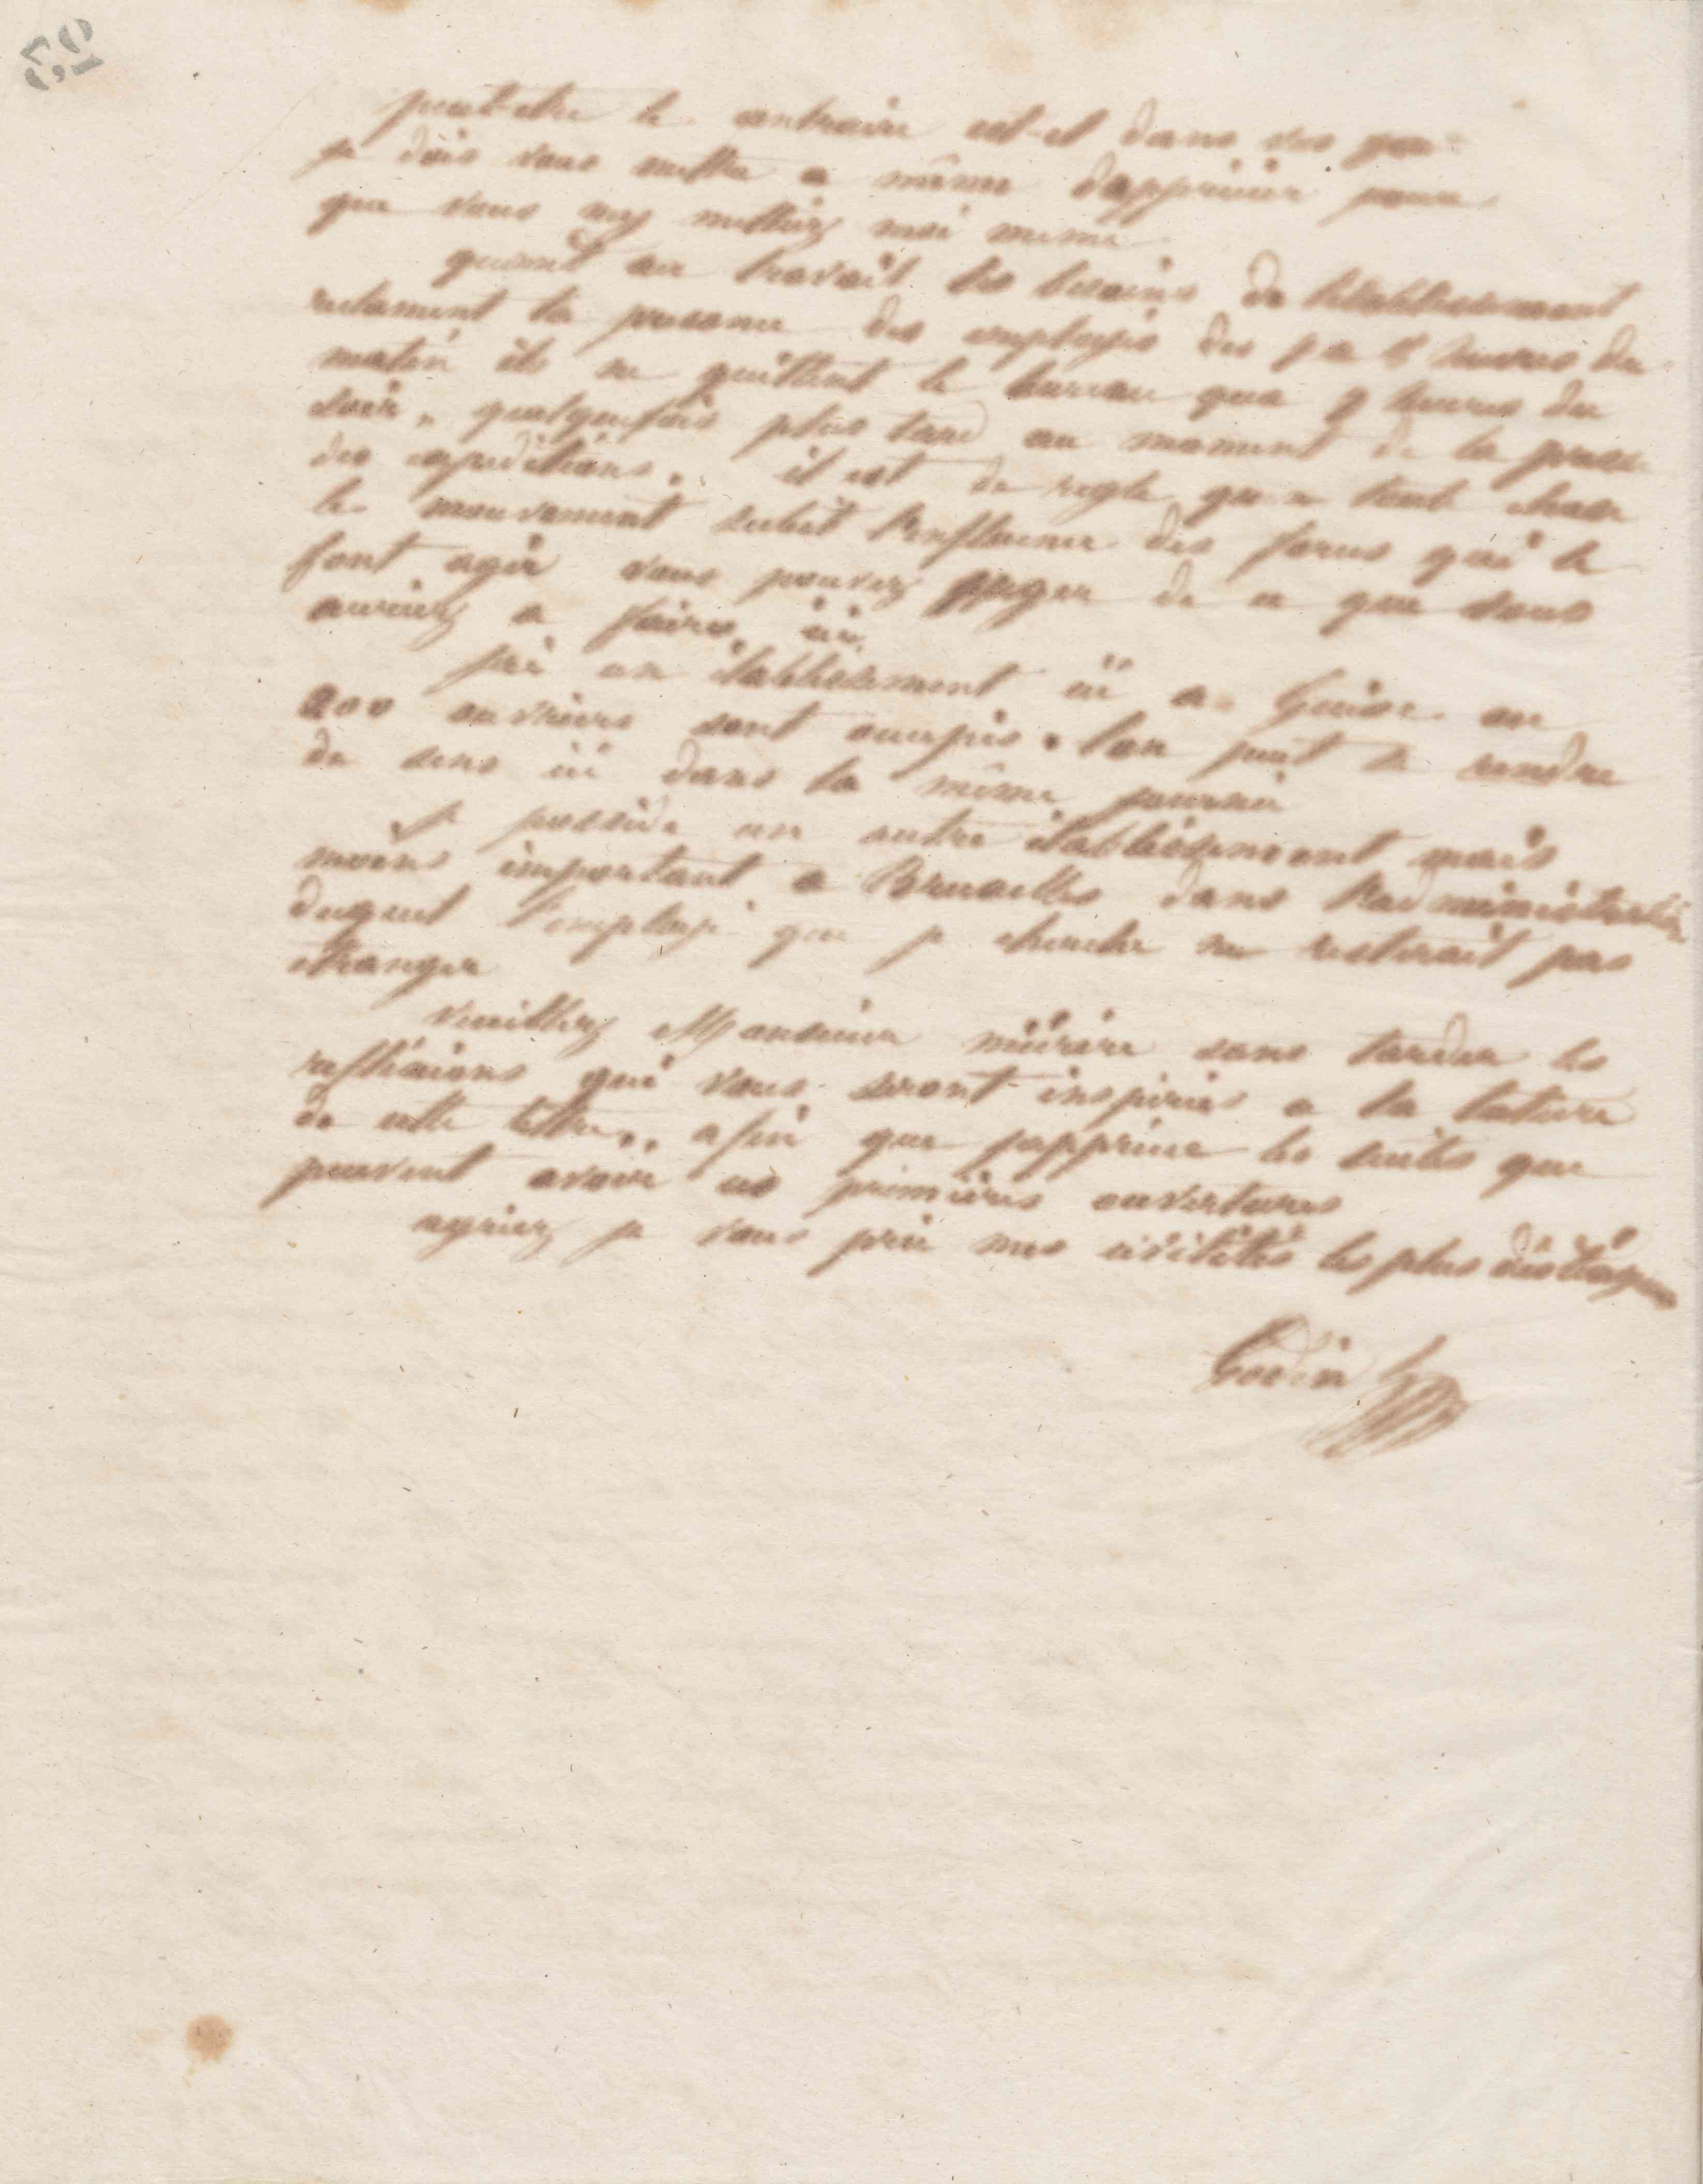 peut-etre le contraire est-il dans vos
je dois vous mettre a même dapprecier pour
que vous my mettiez moi meme
quant au travail les besoins de letablissement
reclament la presence des employés des 7 a 8 heures du
matin ils ne quittent le bureau qua 9 heures du
soir, quelquefois plus tard au moment de la presse
des expeditions. il est de regle quen toute chose
le mouvement subit l'influence des forces qui le
font agir vous pouvez juger de ce que vous
auriez a faire ici
jai un établissement ici a Guise ou
ouvriers sont occupés. lon peut se rendre
de sens ici dans la même journée
je possède un autre établissement mais
moins important a Bruxelles dans l'administration
duquel l'employé que je cherche ne resterait pas
etranger
veuillez Monsieur mûrire sans tarder les
reflexions qui vous seront inspirées a la lecture
de cette lettre,. afin que japprenne les suites que
peuvent avoir ces premières ouvertures
agreez je vous prie mes civilités les plus distinguées
Godin